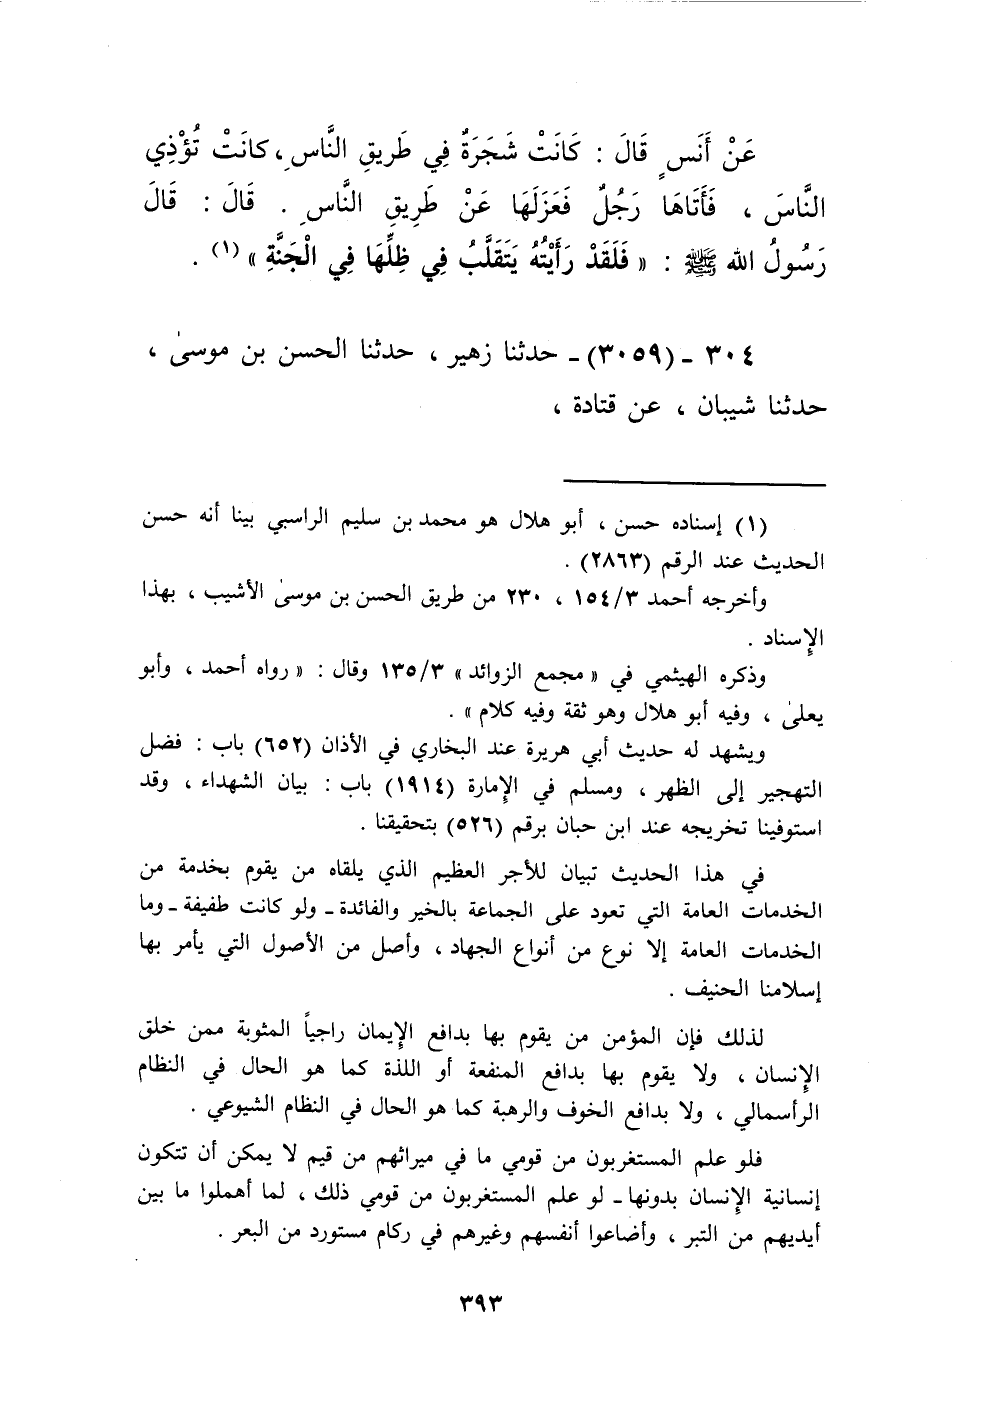 عَنْ أَنَسٍ قَالَ : كَانَتْ شَجَرَةٌ فِي طَرِيقِ النَّاسِ، كانَتْ تُؤْذِي
النَّاسَ ، فَأَتَاهَا رَجُلٌ فَعَزَلَهَا عَنْ طَرِيقِ النَّاسِ . قَالَ : قَالَ
رَسُولُ الله ﷺ : « فَلَقَدْ رَأَيْتُهُ يَتَقَلَّبُ فِي ظِلِّهَا فِي الْجَنَّةِ »(١) .
٣٠٤ - (٣٠٥٩) - حدثنا زهير ، حدثنا الحسن بن موسىٰ ،
حدثنا شيبان ، عن قتادة ،
(١) إسناده حسن ، أبو هلال هو محمد بن سليم الراسبي بينا أنه حسن
الحديث عند الرقم (٢٨٦٣) .
وأخرجه أحمد ١٥٤/٣ ، ٢٣٠ من طريق الحسن بن موسىٰ الأشيب ، بهذا
الإسناد .
وذكره الهيثمي في « مجمع الزوائد » ١٣٥/٣ وقال : « رواه أحمد ، وأبو
يعلىٰ ، وفيه أبو هلال وهو ثقة وفيه كلام » .
ويشهد له حديث أبي هريرة عند البخاري في الأذان (٦٥٢) باب : فضل
التهجير إلى الظهر ، ومسلم في الإمارة (١٩١٤) باب : بيان الشهداء ، وقد
استوفينا تخريجه عند ابن حبان برقم (٥٢٦) بتحقيقنا .
في هذا الحديث تبيان للأجر العظيم الذي يلقاه من يقوم بخدمة من
الخدمات العامة التي تعود على الجماعة بالخير والفائدة - ولو كانت طفيفة - وما
الخدمات العامة إلا نوع من أنواع الجهاد ، وأصل من الأصول التي يأمر بها
إسلامنا الحنيف .
لذلك فإن المؤمن من يقوم بها بدافع الإيمان راجياً المثوبة ممن خلق
الإنسان ، ولا يقوم بها بدافع المنفعة أو اللذة كما هو الحال في النظام
الرأسمالي ، ولا بدافع الخوف والرهبة كما هو الحال في النظام الشيوعي .
فلو علم المستغربون من قومي ما في ميراثهم من قيم لا يمكن أن تتكون
إنسانية الإنسان بدونها - لو علم المستغربون من قومي ذلك ، لما أهملوا ما بين
أيديهم من التبر ، وأضاعوا أنفسهم وغيرهم في ركام مستورد من البعر .
٣٩٣